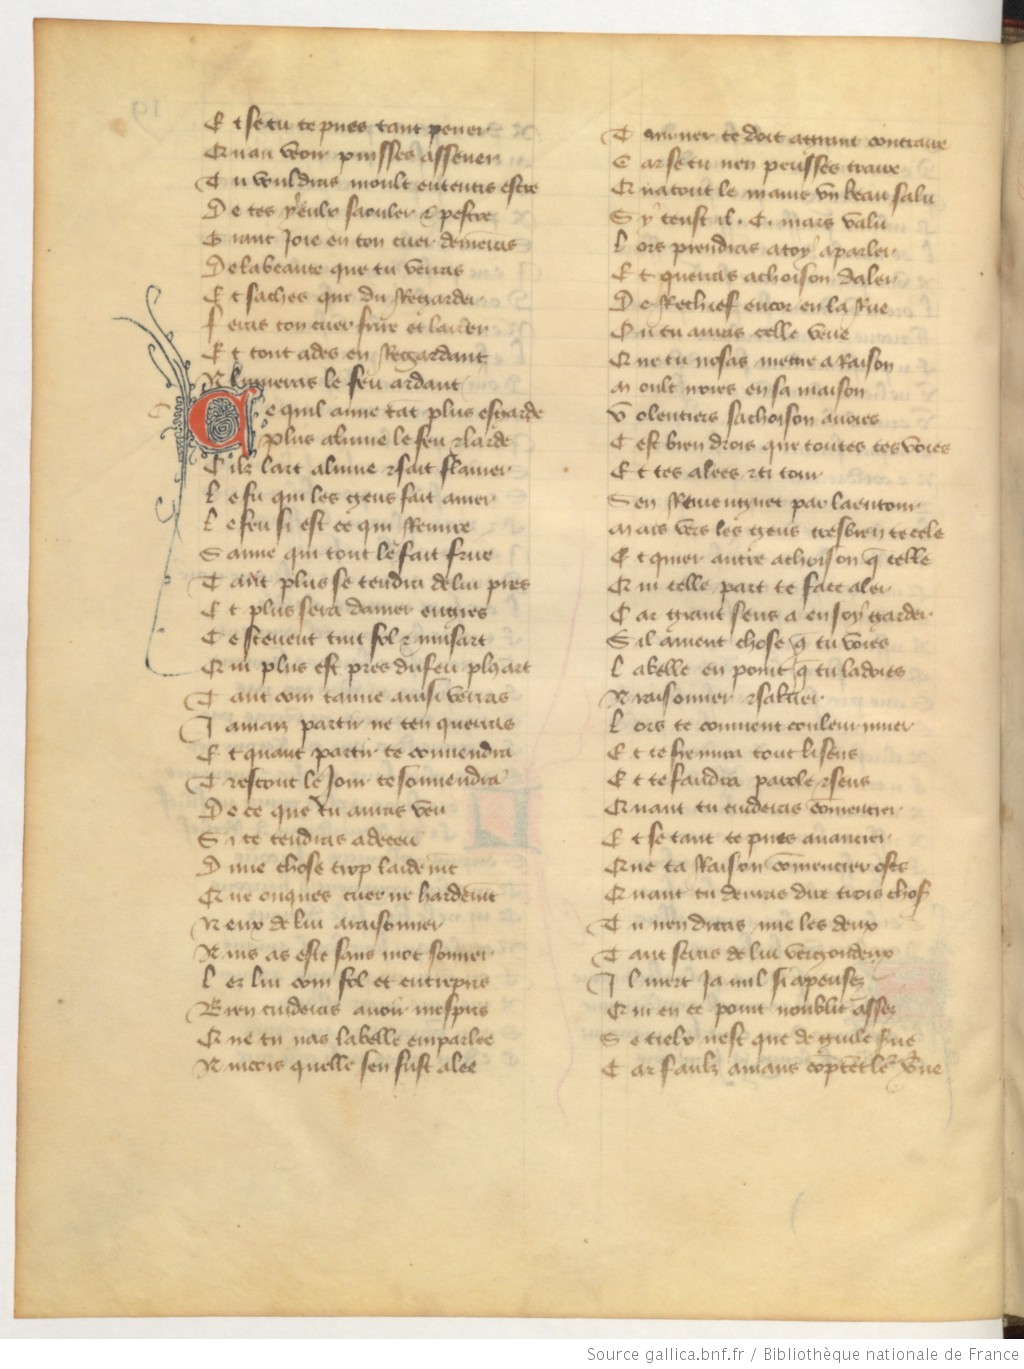 Et se tu te pues tant pener
Quau veoir puisses assener
Tu vouldras moult ententis estre
De tes yeulx saouler & pestre
Grant Joie en ton cuer demenras
De la beaute que tu verras
Et saches que du Regarder
Feras ton cuer frire et larder
Et tout ades en Regardant
Alumeras le feu ardant
Ce quil aime tāt plus esgarde
Plus alume le feu & larde
Cilz lart alume & fait flamer
Le fu qui les gens fait amer
Le feu si est ce qui Remire
Samie qui tout le fait frire
Tant plus se tendra de lui pres
Et plus sera damer engres
Ce scevent tuit fol & musart
Qui plus est pres du feu plꝰ art
Tant com tamie ainsi verras
Jamaiz partir ne ten querras
Et quant partir te convendra
Trestout le Jour te souvendra
De ce que tu auras veu
Si te tendras a deceu
Dune chose trop laidemēt
Que onques cuer ne hardemt
Neux de lui araisonner
Ains as este sans mot sonner
Lez lui com fol et entrepris
Bien cuideras avoir mespris
Que tu nas la belle emparlee
Aincois quelle sen fust alee
Tourner te doit a grant contraire
Car se tu nen peusses traire
Qua tout le mains vn beau salu
Sy teust il .C. mars valu
Lors prendras a toy a parler
Et querras achoison daler
De Rechief encor en la Rue
Ou tu auras celle veue
Que tu nosas mettre a Raison
Moult iroies en sa maison
Volentiers sachoison auoies
Cest bien drois que toutes tes voies
Et tes alees & ti tour
Sen Reviengnent par la entour
Mais vers les gens tresbien te cele
Et quier autre achoison q̄ celle
Qui celle part te face aler
Car grant sens a en soy garder
Sil avient chose q̄ tu voies
La belle en point q̄ tu la doies
Araisonner & saluer
Lors te convient couleur muer
Et te fremira tout li sens
Et te faudra parole & sens
Quant tu cuideras cōmencier
Et se tant te pues avancier
Que ta Raison cōmencier oses
Quant tu devras dire trois choses
Tu nen diras mie les deux
Tant seras de lui vergondeux
Il niert Ja nul si apensez
Qui en ce point noublit assez
Se tielx nest que de guile serve
Car faulz amans